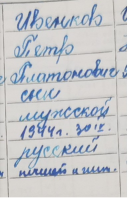 Ивенков
Петр
Платонович
сын
мужской
1914г. 30 IX.
русский